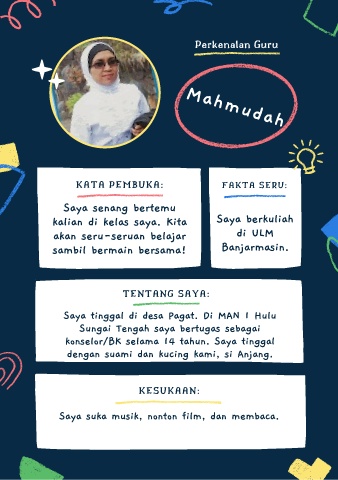 Perkenalan Guru
Mahmudah
KATA PEMBUKA:
Saya senang bertemu
kalian di kelas saya. Kita
akan seru-seruan belajar
sambil bermain bersama!
FAKTA SERU:
Saya berkuliah
di ULM
Banjarmasin.
TENTANG SAYA:
Saya tinggal di desa Pagat. Di MAN 1 Hulu
Sungai Tengah saya bertugas sebagai
konselor/BK selama 14 tahun. Saya tinggal
dengan suami dan kucing kami, si Anjang.
KESUKAAN:
Saya suka musik, nonton film, dan membaca.